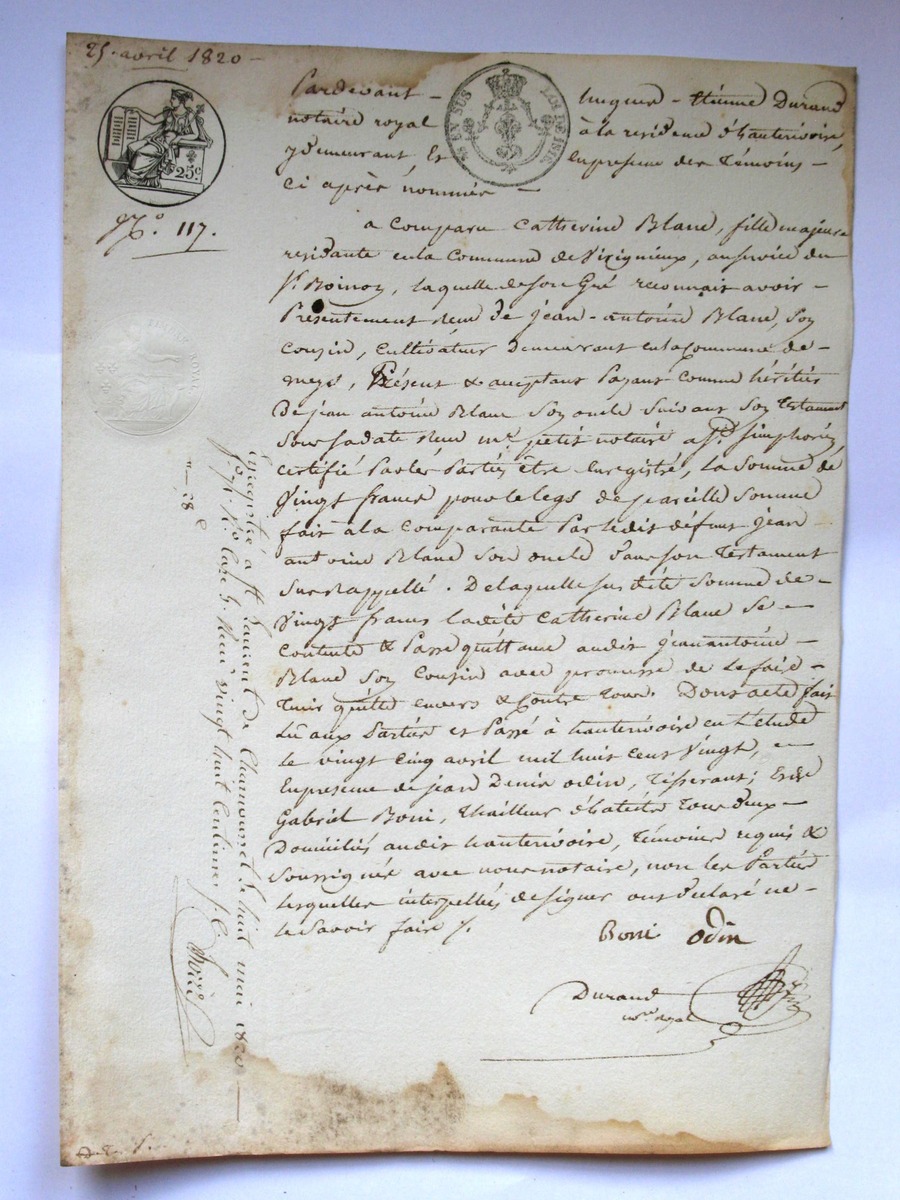 25. avril 1820 -
25c.
10S EN SUS
LOI DE 1816
N.º 117.
Pardevant - hugues - Etienne Durand
notaire royal à la residence d'hauterivoire,
y demeurant, Et en presence des Témoins -
Ci après nommés -
a Comparu Catherine Blanc, fille majeure
residante en la Commune de Virignieux, au service du
Sr. Boinoy, laquelle de son Gré reconnait avoir -
Présentement Recu de jean-antoine Blanc, Son
Cousin, Cultivateur Demeurant en la Commune de -
meys, Présent & acceptant Payant Comme héritier
De jean antoine Blanc Son oncle Suivant Son Testament
Sous sa date Recu me. petit notaire a St. Simphorien,
certifié Par les Parties être Enregistré, La Somme de
Vingt francs pour le legs de pareille Somme
fait à la Comparante Par ledit défunt jean
antoine Blanc Son oncle Dans son Testament
Sus Rappellé. De laquelle susdite Somme de -
Vingt francs ladite Catherine Blanc Se -
Contente & Passe quittance audit jean antoine -
Blanc Son Cousin avec promesse de Le faire -
Tenir quitte envers & Contre Tous. Dont acte fait
Lû aux Parties et Passé à hauterivoire en L'étude
Le vingt Cinq avril mil huit Cent Vingt, -
En presence de jean Denis odin, Tisserant; Et de
Gabriel Boni, Thailleur d'habits Tous Deux -
Domiciliés audit hauterivoire, Témoins requis &
Soussignés avec nous notaire, non les Parties
Lesquelles interpellées de signer ont Déclaré ne -
Le Savoir faire /.
Boni odin
Durand
nore. royal
Enregistré à St. Laurent de Chamousset le huit mai 1820 -
Reçu vingt huit Centimes
- 28 c